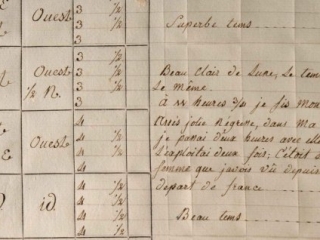 3 ½
Ouest 3 ½
3 ½ Superbe tems
3
3 ½
Ouest 3 ½ Beau Clair de Lune, Le tem
½ N. 3 ½ Le même.
3 ½ À 11 heures ½ je fis mon
4 jolie Négresse, dans Ma
4 ½ je passai deux heures avec elle
Ouest 4 ½ L'exploitai deux fois; C'étoit
4 ½ femme que j'avois Vû depuis
4 ½ depart de france
4 ½
id. 4 ½
4 ½ Beau tems
4 ½